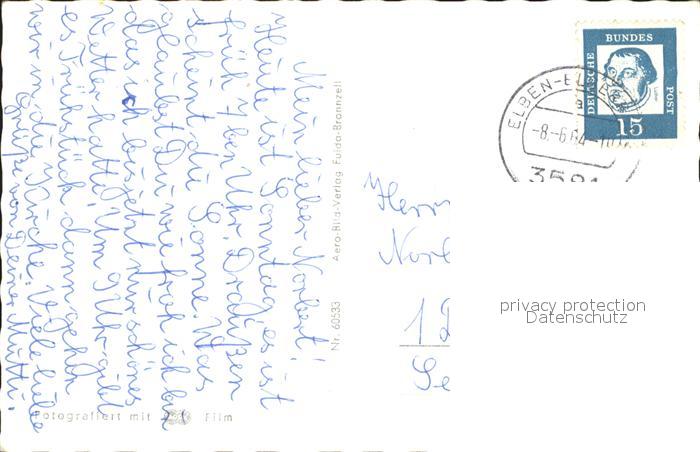 Mein lieber Norbert!
Heute ist Sonntag, es ist
früh 7 ben Uhr. Draußen
scheint die Sonne. Was
glaubst Du wie froh ich bin
das ich bis jetzt nur schönes
Wetter hatte. Um 9 Uhr gibt
es Frühstück, dann gehen
wir in die Kirche. Viele liebe
Grüße von Deiner Mutti.
Fotografiert mit Film
Nr. 60533 Aero-Bild-Verlag Fulda-Bronnzell
DEUTSCHE BUNDES POST
15
ELBEN-EL
a
-8.-6.64-10
3501
Herrn
Nor
1
Se
privacy protection
Datenschutz